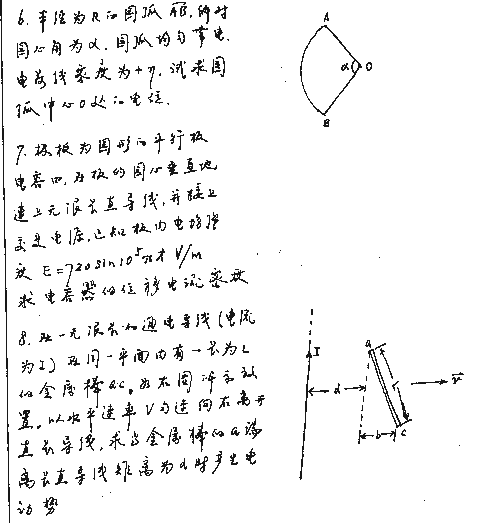 6. 半径为R的圆弧AB, 所对
圆心角为α. 圆弧均匀带电.
电荷线密度为+η. 试求圆
弧中心O处的电位.
A
α
O
B
7. 极板为圆形的平行板
电容器, 在板的圆心垂直地
连上无限长直导线, 并接上
交流电源, 已知板内电场强
度 E=720sin10⁵πt V/m
求电容器的位移电流密度
8. 在一无限长的通电导线(电流
为I) 及同一平面内有一长为L
的金属棒ac. 如右图所示放
置. 以水平速率V匀速向右离开
直长导线, 求当金属棒的a端
离长直导线距离为d时产生电
动势
I
a
d
L
v
b
c